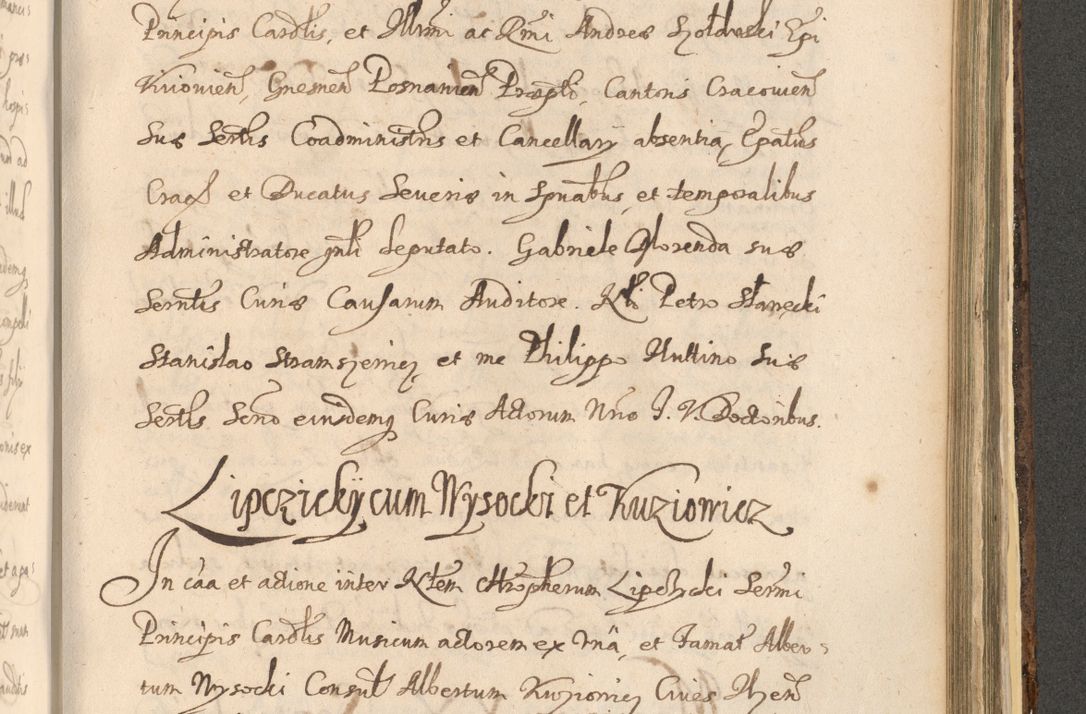 Principis Cardlis, et Illrmi ac Rmi Andreæ Szołdrski Epi
Kiiovien, Gnesnen Posnanien Præpti, Cantoris Cracovien
Suæ Sertis Coadministris et Cancellarij absentia, Epatus
Crac et Ducatus Severiæ in Spualibus, et temporalibus
Administratore gnli deputato. Gabriele Florenda suæ
Serntis Curiæ Causarum Auditore. Petro Starzecki
Stanislao et me Philippo Huttino Suæ
Sertis Seno eiusdemq Curiæ Actorum Nrio J. V. Doctoribus.
Lipczickÿ cum Wysocki et Kuziowicz
In caa et actione inter Xtophorum Lipczycki Sermi
Principis Cardlis Musicum actorem ex una, et Famat Alber-
tum Wysocki Consul Albertum Kuziowicz Cives